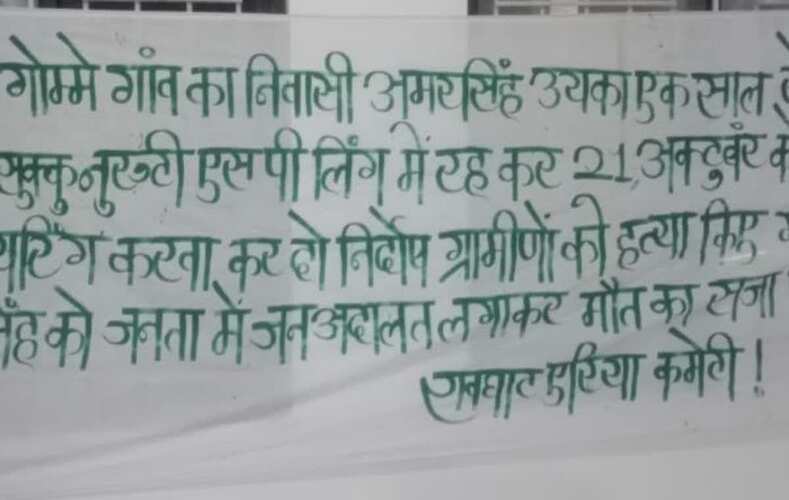 गोम्मे गांव का निवासी अमरसिंह उयका एक साल
सुक्कु नुरुटी एस पी लिंग में रह कर 21, अक्टुबर
करवा कर दो निर्दोष ग्रामीणों की हत्या किए
को जनता में जन अदालत लगाकर मौत का सजा
रावघाट एरिया कमेटी !